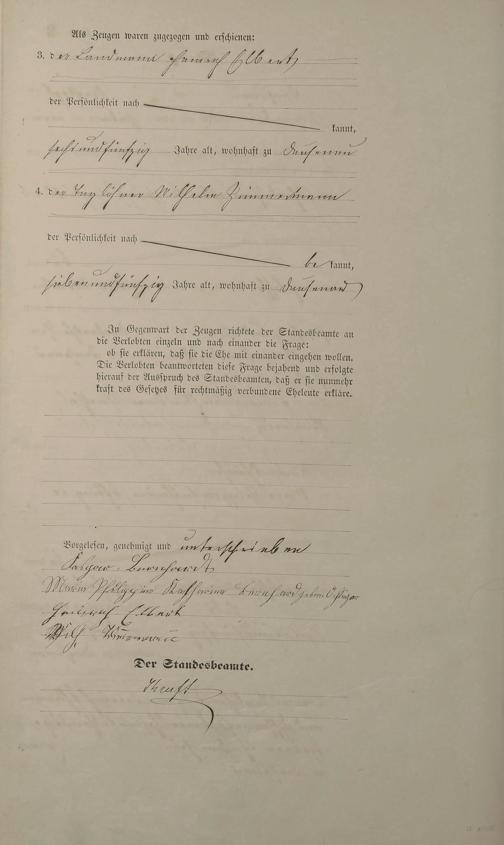 Als Zeugen waren zugezogen und erschienen:
3. der Landmann Heinrich Elbert
der Persönlichkeit nach
kannt,
sechsundfünfzig Jahre alt, wohnhaft zu Dausenau
4. der Taglöhner Wilhelm Zimmermann
der Persönlichkeit nach
be kannt,
siebenundfünfzig Jahre alt, wohnhaft zu Dausenau
In Gegenwart der Zeugen richtete der Standesbeamte an
die Verlobten einzeln und nach einander die Frage:
ob sie erklären, daß sie die Ehe mit einander eingehen wollen.
Die Verlobten beantworteten diese Frage bejahend und erfolgte
hierauf der Ausspruch des Standesbeamten, daß er sie nunmehr
kraft des Gesetzes für rechtmäßig verbundene Eheleute erkläre.
Vorgelesen, genehmigt und unterschrieben
Kaspar Bernhardt
Maria Philippine Katharina Bernhard geborne
Heinrich Elbert
Wilh Zimmermann
Der Standesbeamte.